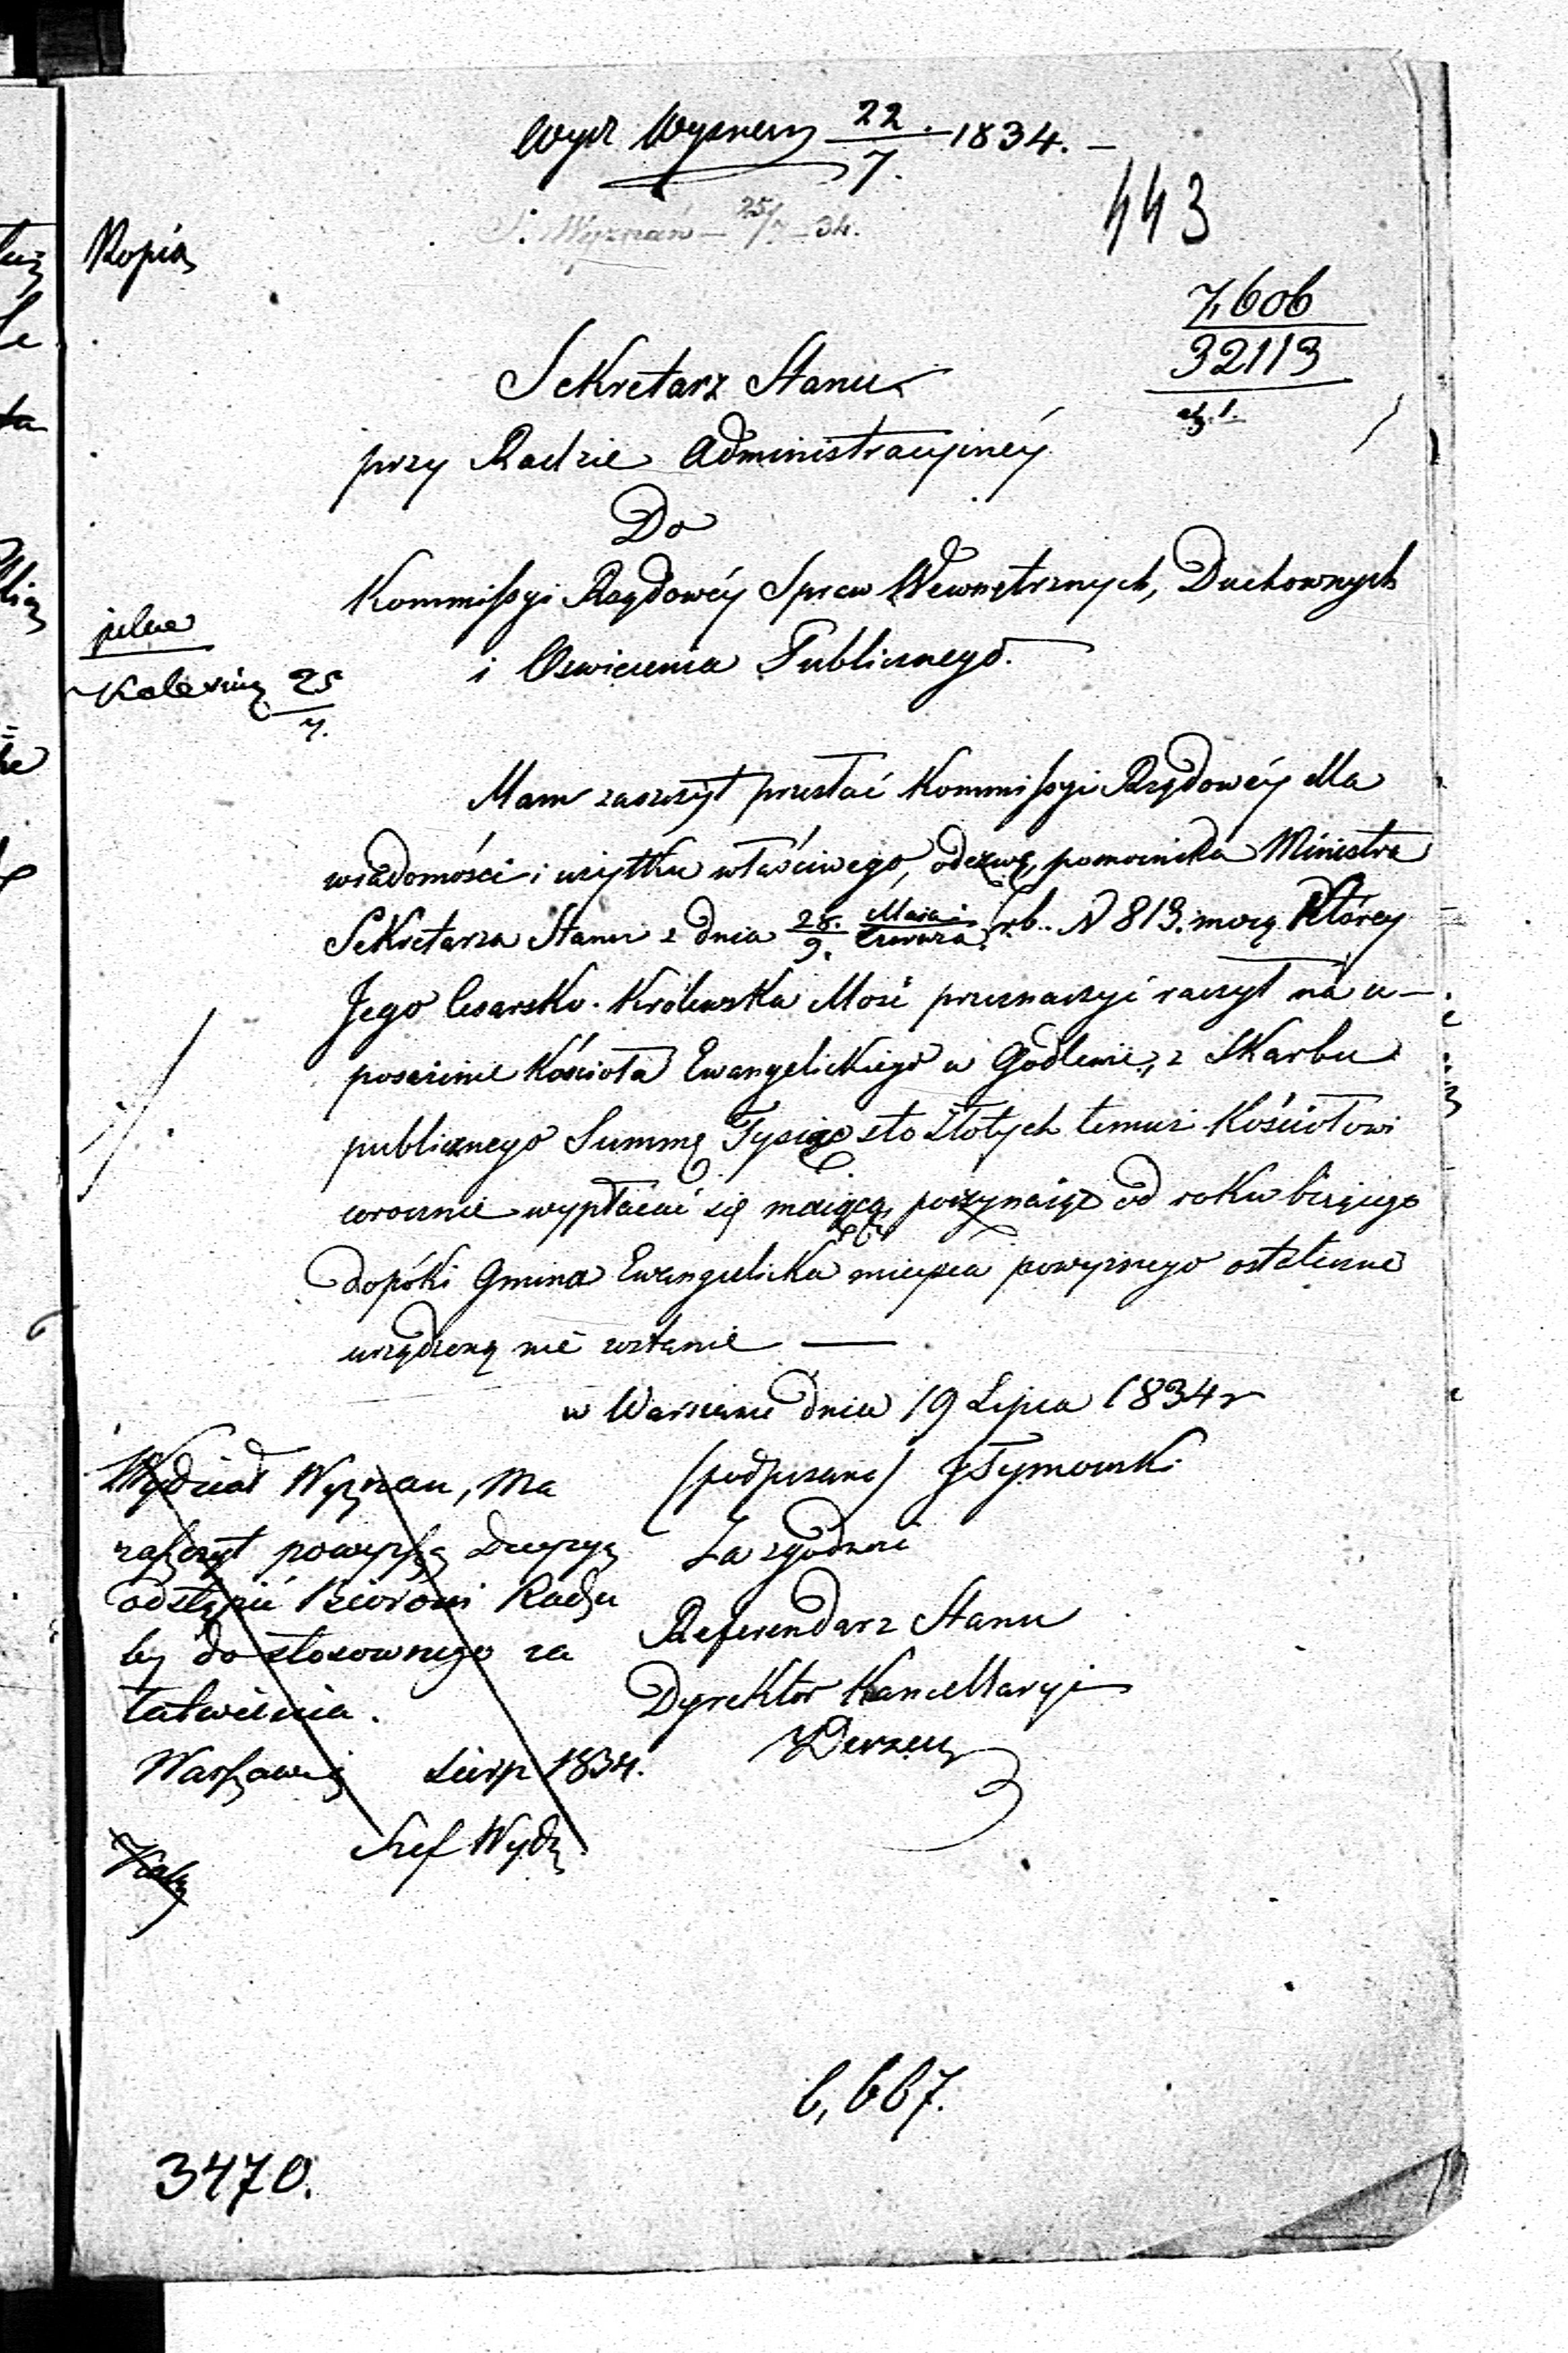 22/7. 1834.
S. Wyznań 25/7 34.
443
Kopia
7,606
32113
Sekretarz Stanu
przy Radzie Administracyiney
Do
Kommissyi Rządowéy Spraw Wewnętrznych, Duchownych
i Oświecenia Publicznego.
pilne
25/7.
Mam zaszczyt przesłać Kommissyi Rządowéy dla
wiadomości i użytku właściwego, odezwę, pomocnika Ministra
Sekretarza Stanu z dnia 28./9. Maia/Czerwca r.b. N 813. mocą którey
Jego Cesarsko-Królewska Mość przeznaczyć raczył na u-
posażenie Kościoła Ewangelickiego w Godlewie, z Skarbu
publicznego Summę Tysiąc sto Złotych temuż Kościołowi
corocznie wypłacać się maiącą, poczynaiąc od roku bieżącego
dopóki Gmina Ewangelicka mieysca powyższego ostatecznie
urządzoną nie zostanie —
w Warszawie dnia 19 Lipca 1834 r
(podpisano) J Tymowski
Za zgodność
Referendarz Stanu
Dyrektor Kancellaryi
Wydział Wyznan, ma
zaszczyt powyższą decyzyą
odstąpić Biurowi Radzu
by do stosownego za
łatwienia.
Warszawa Sierp 1834.
Szef Wydz
6,667.
3470.